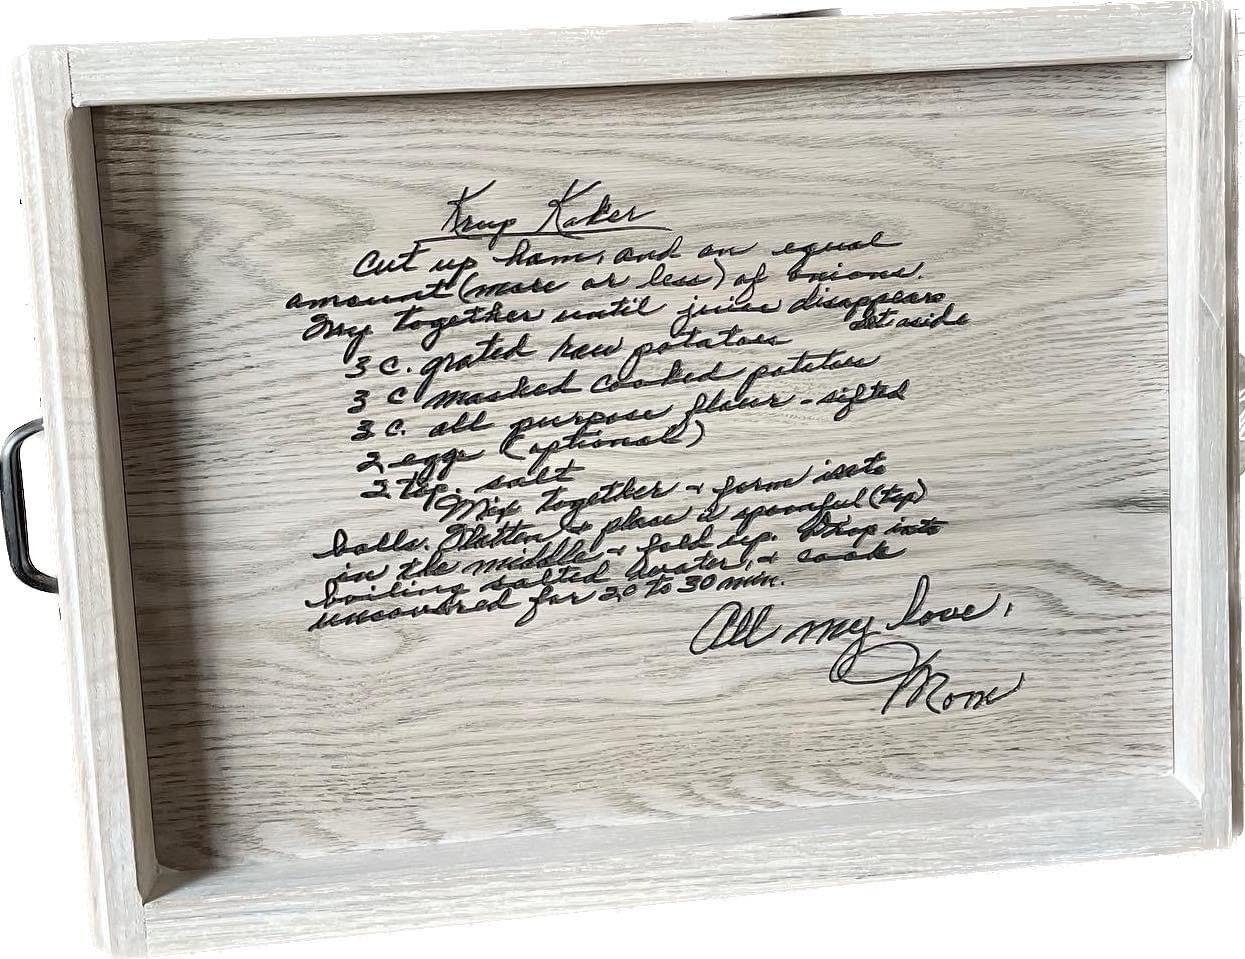 Krup Kaker
Cut up ham, and an equal
amount (more or less) of onions.
Fry together until juice disappears
set aside
3 c. grated raw potatoes
3 c mashed cooked potatoes
3 c. all purpose flour - sifted
2 eggs (optional)
2 tsp. salt
Mix together + form into
balls. Flatten + place a spoonful (tsp)
in the middle + fold up. Drop into
boiling salted water, + cook
uncovered for 20 to 30 min.
All my love,
Mom